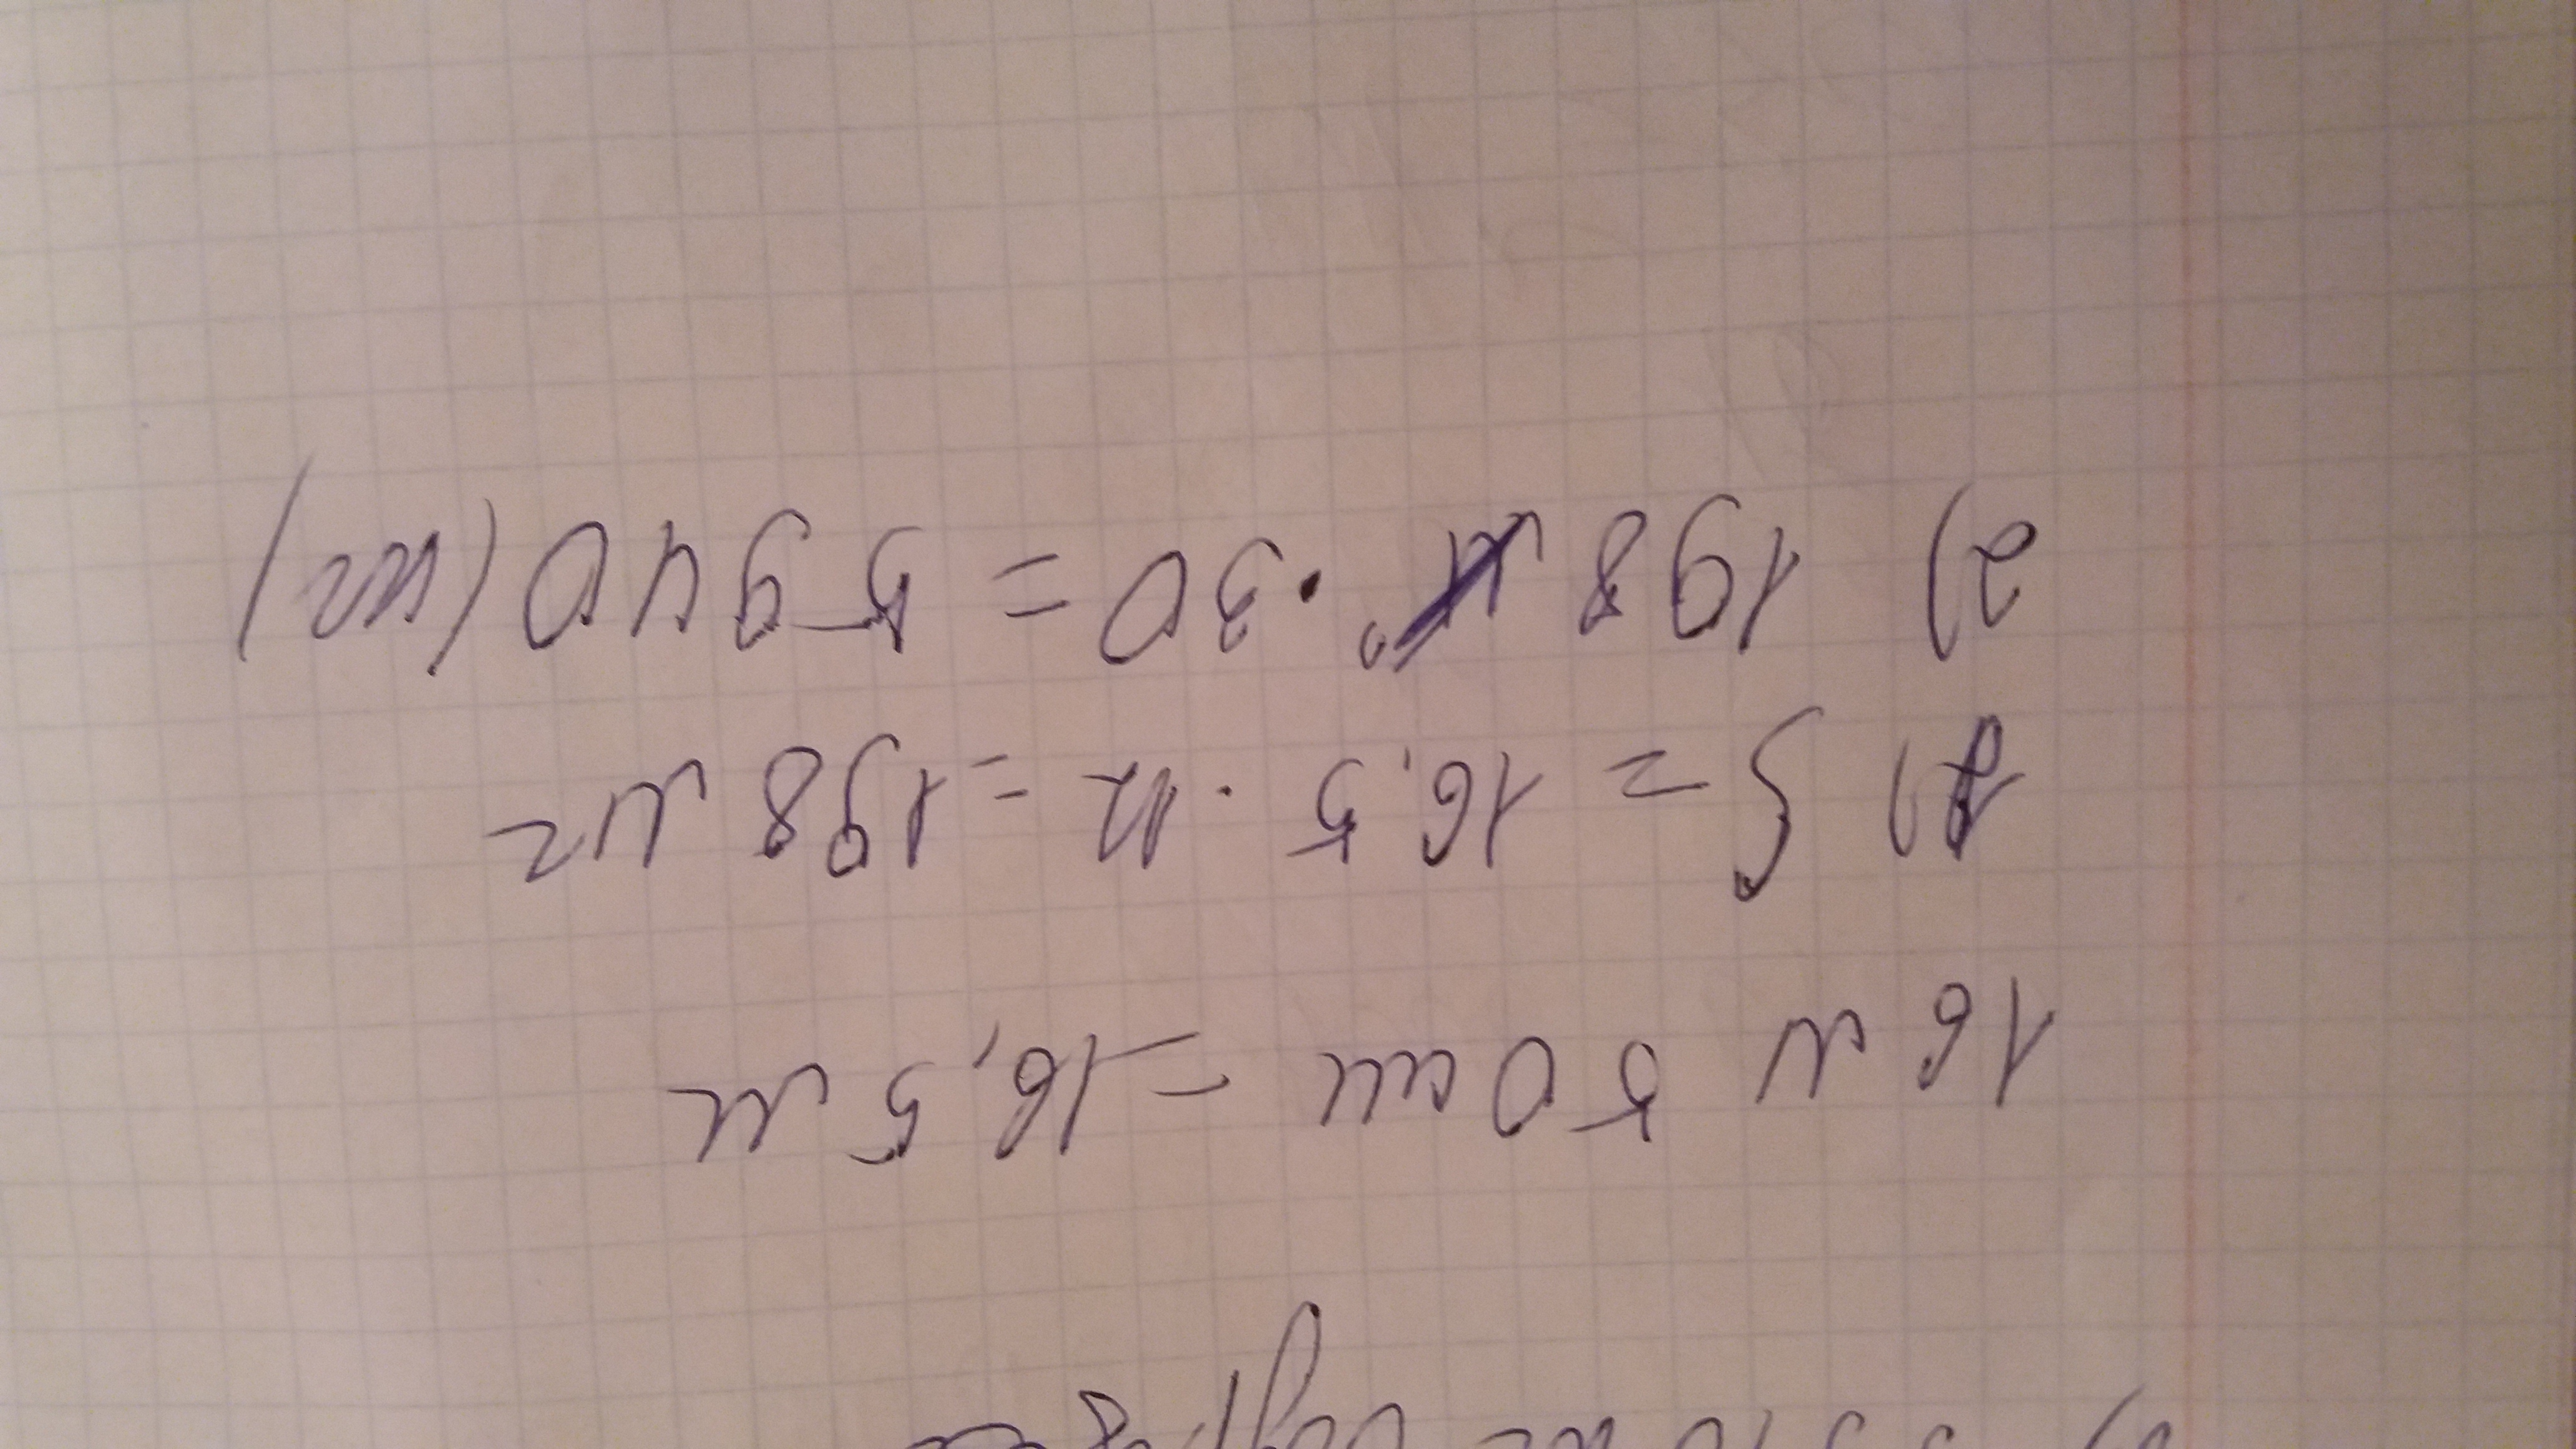 16 м 50 см = 16,5 м
1) S = 16,5 · 12 = 198 м2
2) 198 · 30 = 5940 (кг)